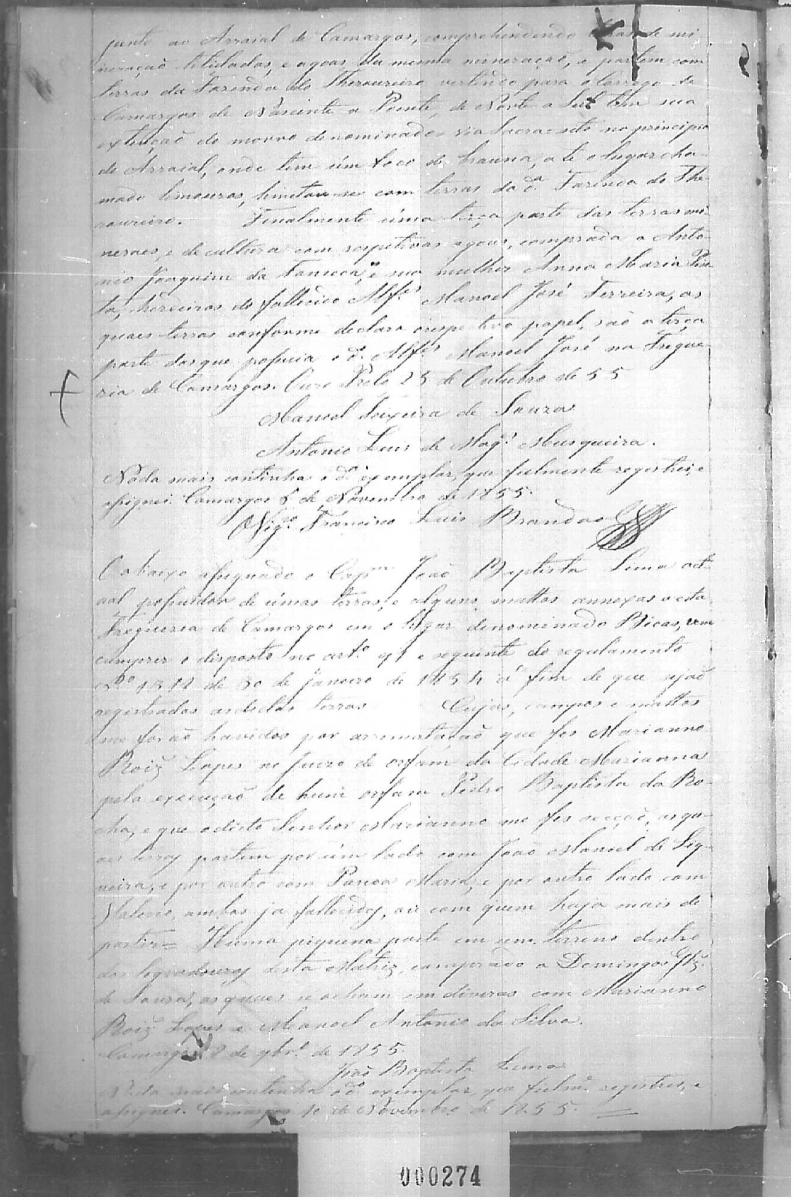 junto ao Arraial de Camargos, comprehendendo de mi
neração, e agoas da mesma mineração, e partem com
terras da Fazenda do Thesoureiro vertendo para o Corrego de
Camargos de Nascente a Poente, de Norte a Sul tem sua
extenção do morro denominado via Sacra no principio
do Arraial, onde tem um toco de brauna, a te o lugar cha
mado limouras, com terras da da. Fazenda do The
soureiro. Finalmente uma terça parte das terras mi
neraes, e de cultura com respetivas agoas, comprada a Anto
nio Joaquim da Fonseca, e sua mulher Anna Maria
herdeiros do fallecido Alfs. Manoel José Ferreira, as
quaes terras conforme declara o respetivo papel, são a terça
parte das que possuia o do. Alfs. Manoel José na Fregue
zia de Camargos. Ouro Preto 25 de Outubro de 55
Manoel Teixeira de Souza
Antonio Luis de Mags. Musqueira.
Nada mais continha o do. exemplar, que fielmente registrei, e
assignei. Camargos 6 de Novembro de 1855.
Vigo. Francisco Luis Brandão
O abaixo assignado o Capm. João Baptista Lima act
ual possuidor de umas terras, e alguns mattos annexas a esta
Freguezia de Camargos em o lugar denominado Bicas, vem
cumprir o disposto no arto. 91 e seguinte do regulamento
No. 1318 de 30 de Janeiro de 1854 a fim de que sejão
registradas as terras. Cujos, campos e mattos
me forão havidos por arrematação que fes Marianno
Roiz Lopes no Juizo de orfam da Cidade Marianna
pela execução de hum orfam Pedro Baptista da Ro
cha, e que o dito Senhor Marianno me fes, as qu
aes terras partem por um lado com João Manoel de Siq
ueira, e por outro com Maria, e por outro lado com
Valerio, ambos ja fallecidos, ou com quem haja mais de
partir = Huma piquena parte em um terreno dentre
dos logradouros desta Matriz, comprado a Domingos
de Souza, as quaes se acham em com Marianno
Roiz Lopes e Manoel Antonio da Silva.
Camargos 8 de 9bro. de 1855.
João Baptista Lima
Nada mais continha o do. exemplar, que registrei, e
assignei. Camargos 10 de Novembro de 1855.
000274